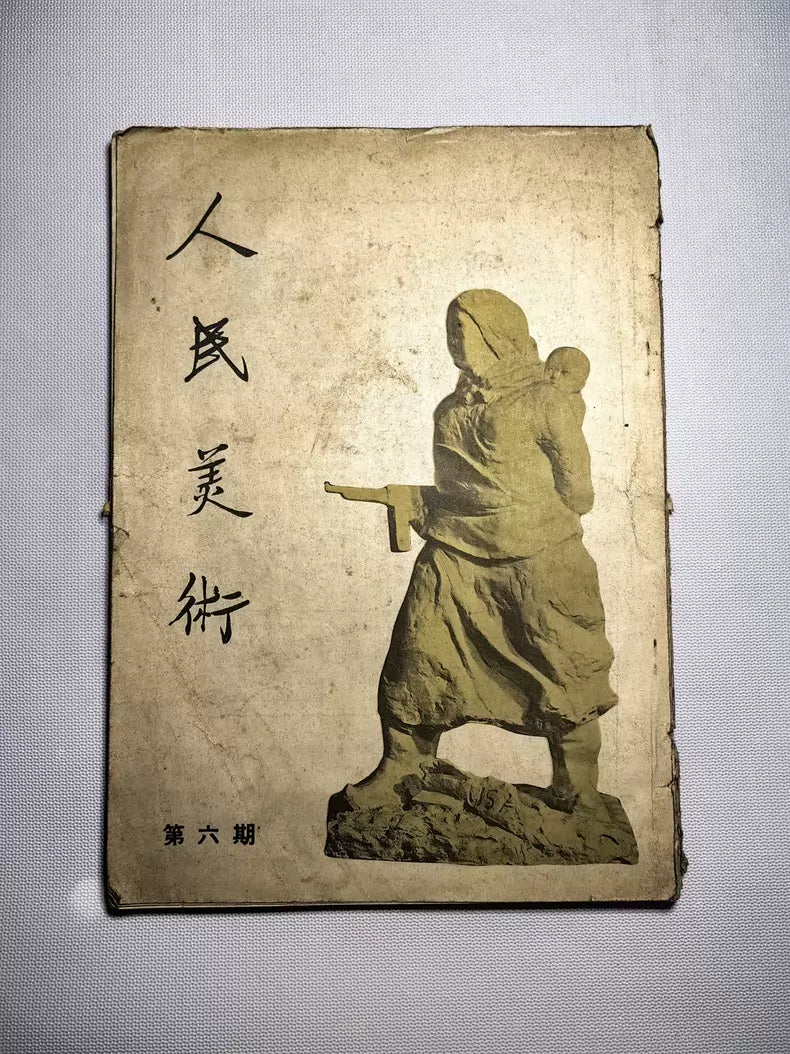 人民美術
第六期
USA